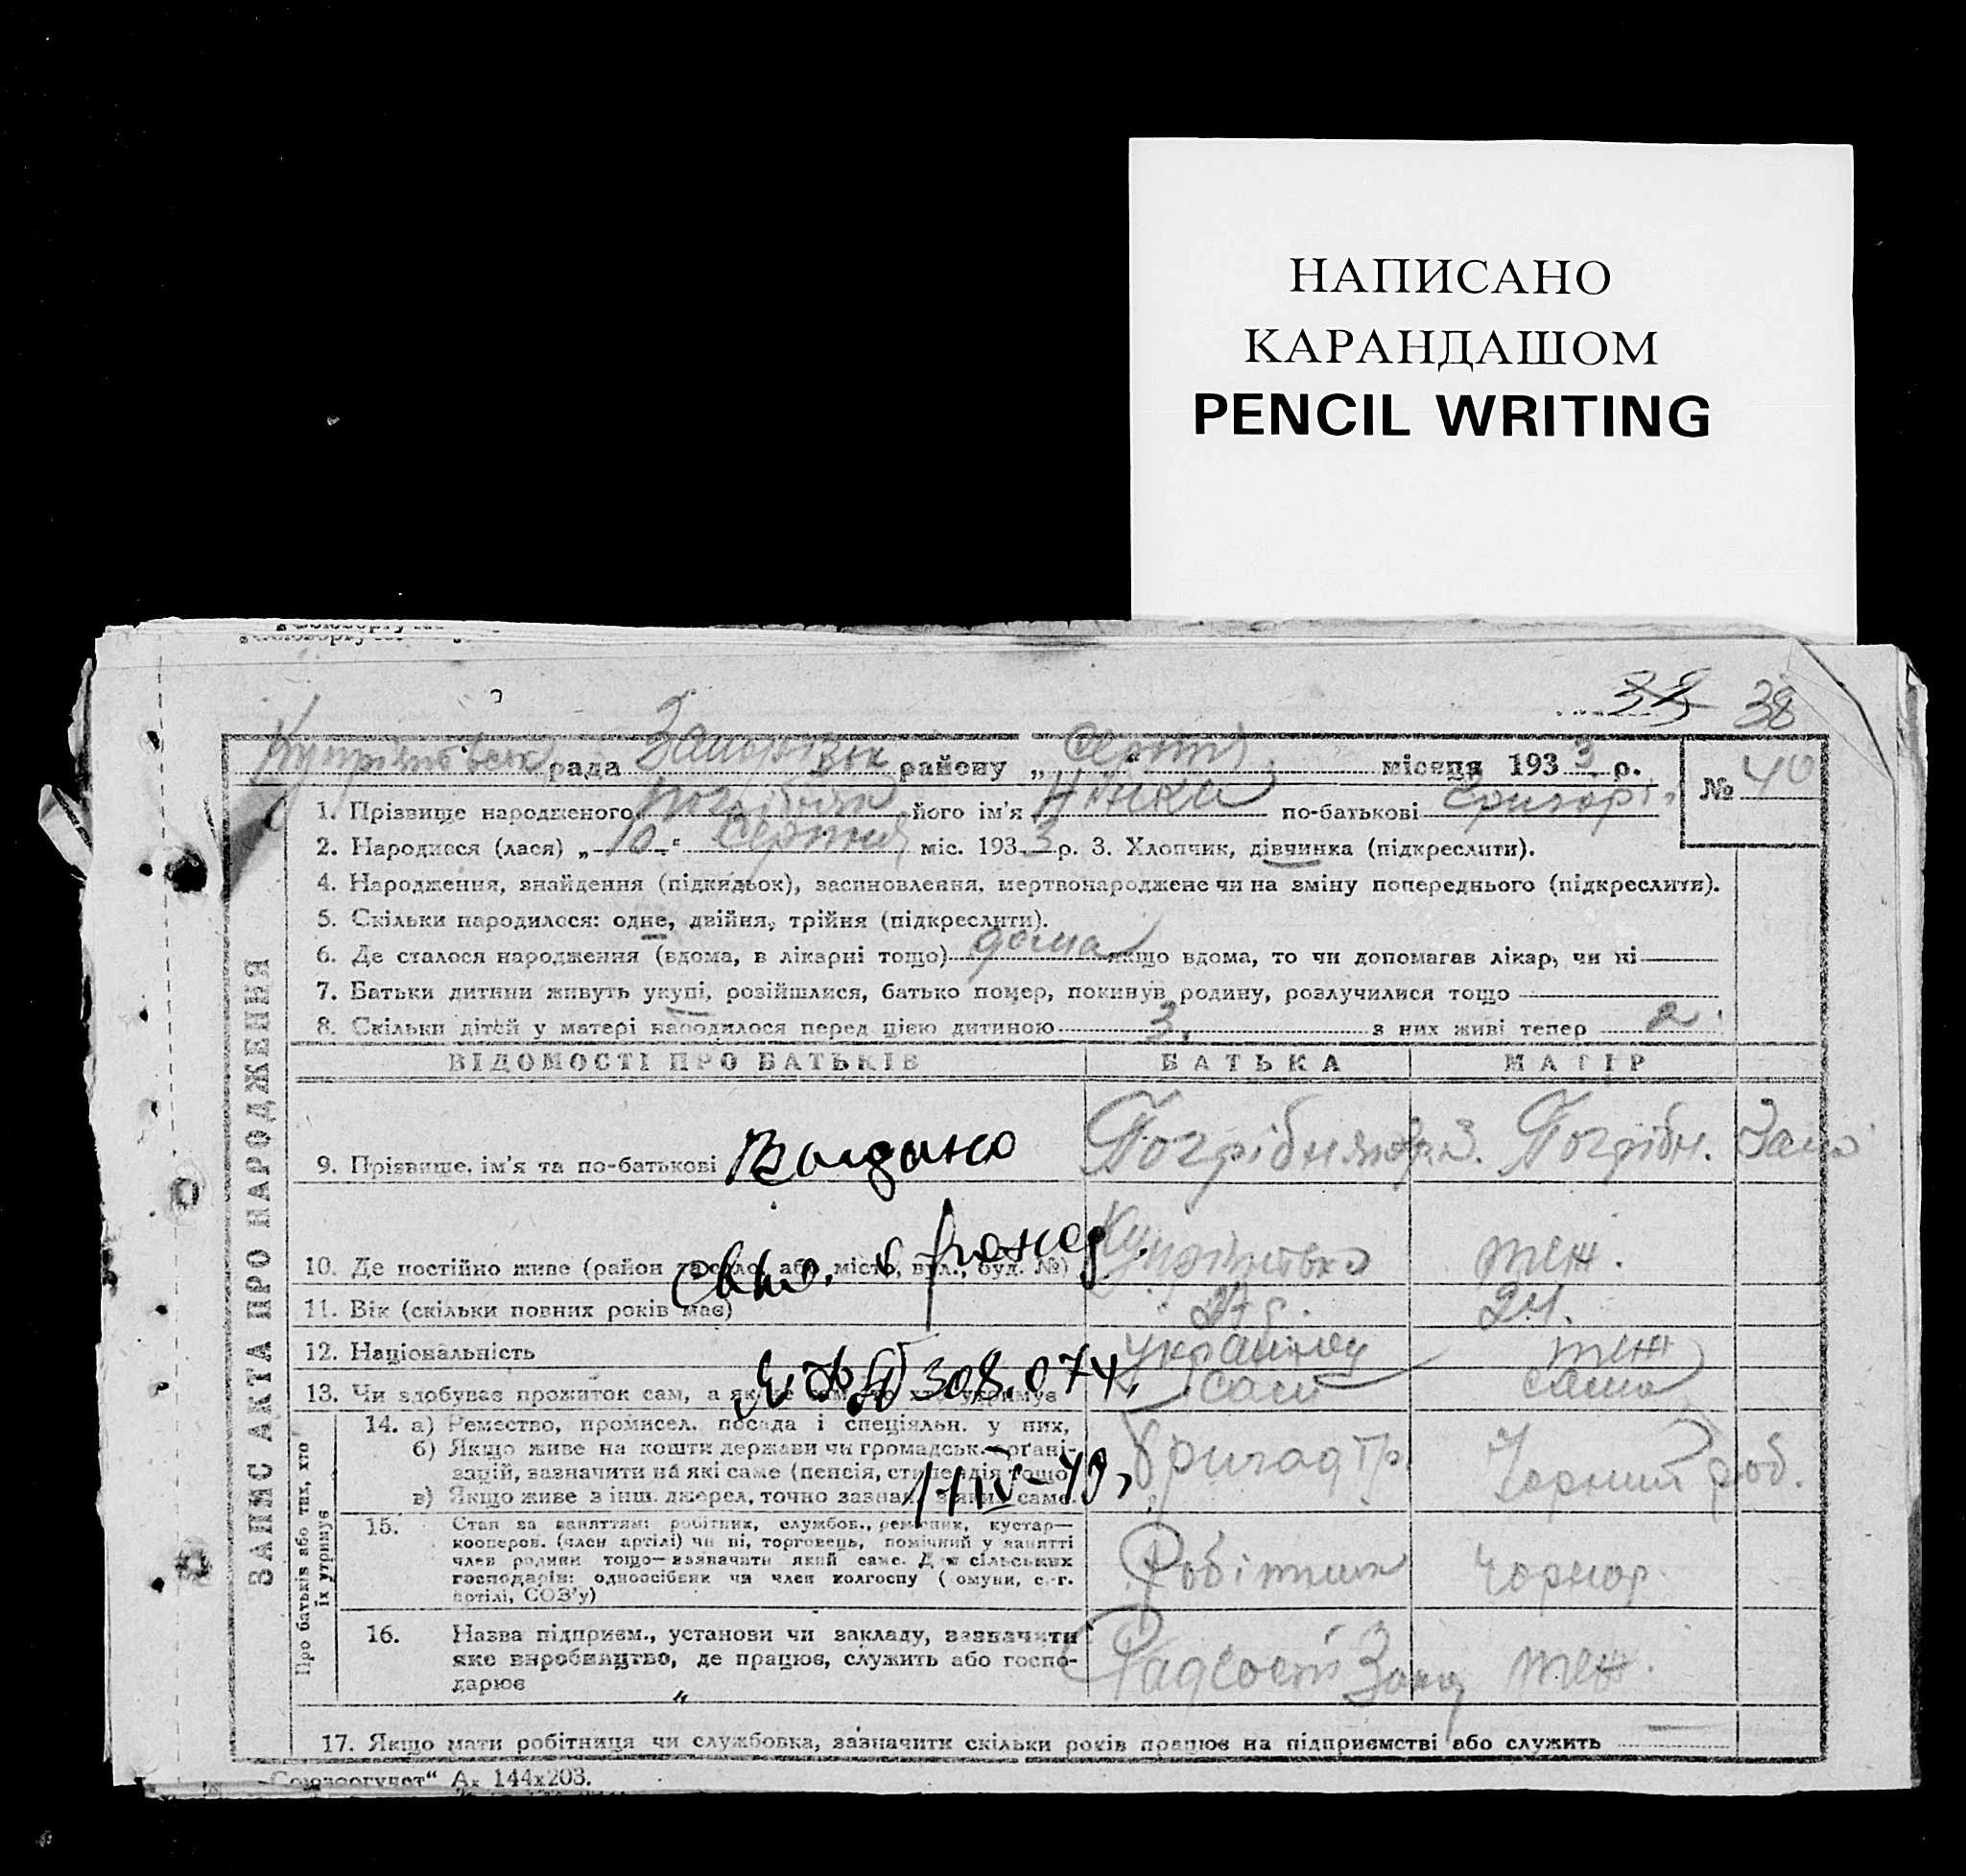 НАПИСАНО
КАРАНДАШОМ
PENCIL WRITING
38
рада районУ „ " місяця 1933 р. № 40
1. Прізвище народженого його ім'я Нінка по-батькові Григорі
2. Народився (лася) „10" серпня міс. 1933 р. 3. Хлопчик, дівчинка (підкреслити).
4. Народження, знайдення (підкидьок), засиновлення, мертвонароджене чи на зміну попереднього (підкреслити).
5. Скільки народилося: одне, двійня, трійня (підкреслити).
6. Де сталося народження (вдома, в лікарні тощо) дома якщо вдома, то чи допомагав лікар, чи ні
7. Батьки дитини живуть укупі, розійшлися, батько помер, покинув родину, розлучилися тощо
8. Скільки дітей у матері народилося перед цією дитиною 3. з них живі тепер 2
ЗАПИС АКТА ПРО НАРОДЖЕННЯ
ВІДОМОСТІ ПРО БАТЬКІВ БАТЬКА МАТІР
9. Прізвище, ім'я та по-батькові Погрібн.
10. Де постійно живе (район та село, або місто, вул., буд. №) теж.
11. Вік (скільки повних років має) 24.
12. Національність українец теж
13. Чи здобуває прожиток сам, а як не сам, то хто утримує сам сама
ЫФ 308.074,
Про батьків або тих, хто їх утримує
14. а) Ремество, промисел, посада і спеціяльн. у них,
б) Якщо живе на кошти держави чи громадськ. органі-
зацій, зазначити на які саме (пенсія, стипендія тощо)
в) Якщо живе з інш. джерел, точно зазнач. з яких саме.
Чорний роб.
15. Стан за заняттям: робітник, службов., ремісник, кустар—
кооперов. (член артілі) чи ні, торговець, помічний у занятті
член родини тощо—зазначити який саме. Для сільських
господарів: одноосібник чи член колгоспу (комуни, с.-г.
артілі, СОЗ'у)
Робітник чорнор.
16. Назва підприєм., установи чи закладу, зазначити
яке виробництво, де працює, служить або госпо-
дарює
теж.
17. Якщо мати робітниця чи службовка, зазначити скільки років працює на підприємстві або служить
„Союзоргучет" А, 144х203.